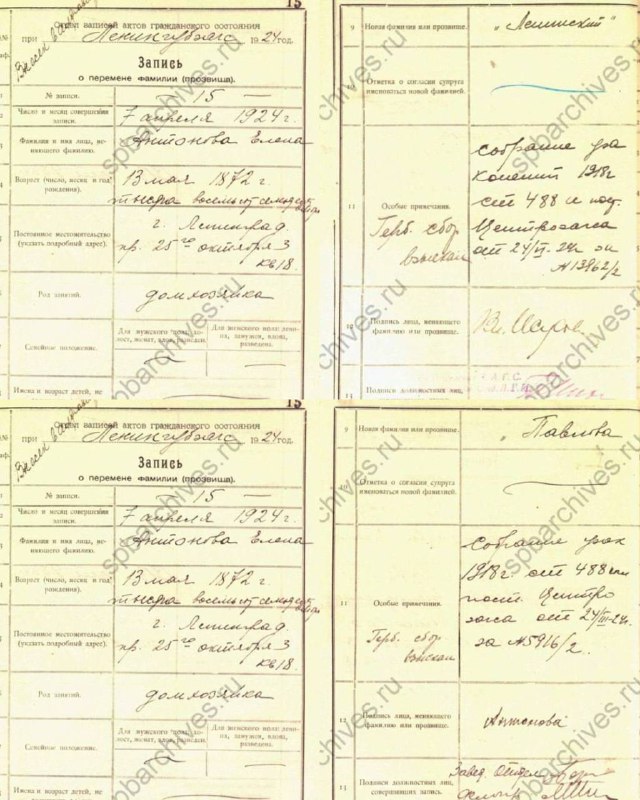 15
Отдел записей актов гражданского состояния
при Ленингубзагс 1924 год.
Запись
о перемене фамилии (прозвища).
№ записи.
— 15 —
Число и месяц совершения
записи.
7 апреля 1924 г.
Фамилия и имя лица, ме-
няющего фамилию.
Антонова Елена
Возраст (число, месяц и год
рождения).
13 мая 1872 г
тысяча восемьсот семьдесят
Постоянное местожительство
(указать подробный адрес).
г. Ленинград
пр. 25го октября 3
кв 18.
Род занятий.
домхозяйка
Семейное положение.
Для мужского пола: хо-
лост, женат, вдов, разведен.
Для женского пола: деви-
ца, замужняя, вдова,
разведена.
Имена и возраст детей, не
9 Новая фамилия или прозвище.
"Ленинский"
10 Отметка о согласии супруга
именоваться новой фамилией.
11 Особые примечания.
Герб. сбор
взыскан
собрание уза
конений 1918 г
ст 488 и пост.
Центрозагса
от 24/VI-24г за
№13962/2
Подпись лица, меняющего
фамилию или прозвище.
Подписи должностных лиц,
spbarchives.ru
15
Отдел записей актов гражданского состояния
при Ленингубзагс 1924 год.
Запись
о перемене фамилии (прозвища).
№ записи.
— 15 —
Число и месяц совершения
записи.
7 апреля 1924 г.
Фамилия и имя лица, ме-
няющего фамилию.
Антонова Елена
Возраст (число, месяц и год
рождения).
13 мая 1872 г
тысяча восемьсот семьдесят
Постоянное местожительство
(указать подробный адрес).
г. Ленинград
пр. 25го октября 3
кв 18.
Род занятий.
домхозяйка
Семейное положение.
Для мужского пола: хо-
лост, женат, вдов, разведен.
Для женского пола: деви-
ца, замужняя, вдова,
разведена.
Имена и возраст детей, не
9 Новая фамилия или прозвище.
"Павлова
10 Отметка о согласии супруга
именоваться новой фамилией.
11 Особые примечания.
Герб. сбор
взыскан
Собрание узак
1918 г. ст 488 и
пост Центро
загса от 24/III-24г
за №5916/2.
12 Подпись лица, меняющего
фамилию или прозвище.
Антонова
13 Подписи должностных лиц,
совершивших запись.
Завед. Отдел
spbarchives.ru